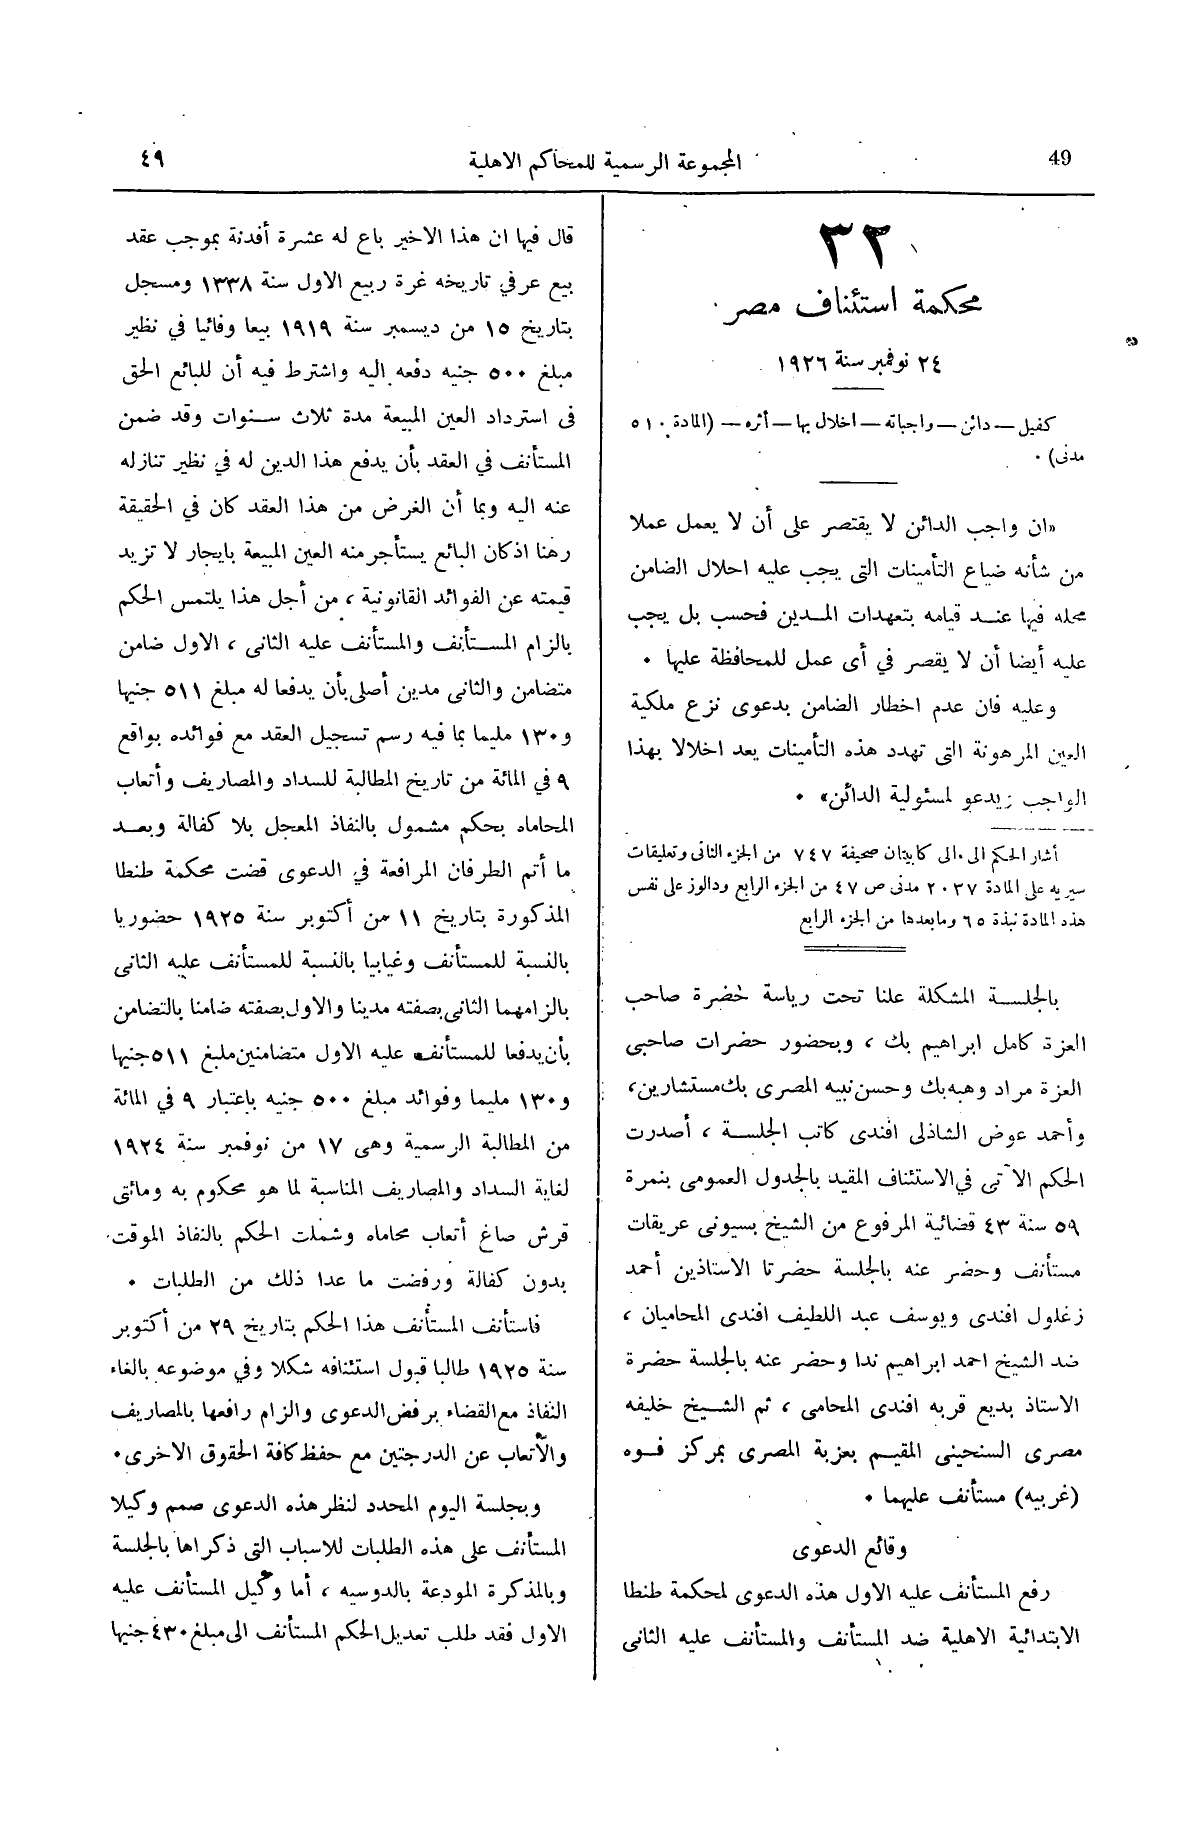 49
المجموعة الرسمية للمحاكم الاهلية
٤٩
٣٢
محكمة استئناف مصر
٢٤ نوفمبر سنة ١٩٢٦
كفيل — دائن — واجباته — اخلال بها — أثره — (المادة ٥١٠
مدنى) ٠
«ان واجب الدائن لا يقتصر على أن لا يعمل عملا
من شأنه ضياع التأمينات التى يجب عليه احلال الضامن
محله فيها عند قيامه بتعهدات المدين فحسب بل يجب
عليه أيضا أن لا يقصر في أى عمل للمحافظة عليها ٠
وعليه فان عدم اخطار الضامن بدعوى نزع ملكية
العين المرهونة التى تهدد هذه التأمينات يعد اخلالا بهذا
الواجب ويدعو لمسئولية الدائن» ٠
أشار الحكم الى كابيتان صحيفة ٧٤٧ من الجزء الثانى وتعليقات
سيريه على المادة ٢٠٣٧ مدنى ص ٤٧ من الجزء الرابع ودالوز على نفس
هذه المادة نبذة ٦٥ ومابعدها من الجزء الرابع
بالجلسة المشكلة علنا تحت رياسة حضرة صاحب
العزة كامل ابراهيم بك ، وبحضور حضرات صاحبى
العزة مراد وهبه بك وحسن نبيه المصرى بك مستشارين،
وأحمد عوض الشاذلى افندى كاتب الجلسة ، أصدرت
الحكم الآتى في الاستئناف المقيد بالجدول العمومى بنمرة
٥٩ سنة ٤٣ قضائية المرفوع من الشيخ بسيونى عريقات
مستأنف وحضر عنه بالجلسة حضرتا الاستاذين أحمد
زغلول افندى ويوسف عبد اللطيف افندى المحاميان ،
ضد الشيخ احمد ابراهيم ندا وحضر عنه بالجلسة حضرة
الاستاذ بديع قربه افندى المحامى ، ثم الشيخ خليفه
مصرى السنحينى المقيم بعزبة المصرى بمركز فوه
(غربيه) مستأنف عليهما ٠
وقائع الدعوى
رفع المستأنف عليه الاول هذه الدعوى لمحكمة طنطا
الابتدائية الاهلية ضد المستأنف والمستأنف عليه الثانى
قال فيها ان هذا الاخير باع له عشرة أفدنة بموجب عقد
بيع عرفي تاريخه غرة ربيع الاول سنة ١٣٣٨ ومسجل
بتاريخ ١٥ من ديسمبر سنة ١٩١٩ بيعا وفائيا في نظير
مبلغ ٥٠٠ جنيه دفعه اليه واشترط فيه أن للبائع الحق
فى استرداد العين المبيعة مدة ثلاث سنوات وقد ضمن
المستأنف في العقد بأن يدفع هذا الدين له في نظير تنازله
عنه اليه وبما أن الغرض من هذا العقد كان في الحقيقة
رهنا اذ كان البائع يستأجر منه العين المبيعة بايجار لا تزيد
قيمته عن الفوائد القانونية ، من أجل هذا يلتمس الحكم
بالزام المستأنف والمستأنف عليه الثانى ، الاول ضامن
متضامن والثانى مدين أصلى بأن يدفعا له مبلغ ٥١١ جنيها
و١٣٠ مليما بما فيه رسم تسجيل العقد مع فوائده بواقع
٩ في المائة من تاريخ المطالبة للسداد والمصاريف وأتعاب
المحاماه بحكم مشمول بالنفاذ المعجل بلا كفالة وبعد
ما أتم الطرفان المرافعة في الدعوى قضت محكمة طنطا
المذكورة بتاريخ ١١ من أكتوبر سنة ١٩٢٥ حضوريا
بالنسبة للمستأنف وغيابيا بالنسبة للمستأنف عليه الثانى
بالزامهما الثانى بصفته مدينا والاول بصفته ضامنا بالتضامن
بأن يدفعا للمستأنف عليه الاول متضامنين مبلغ ٥١١ جنيها
و١٣٠ مليما وفوائد مبلغ ٥٠٠ جنيه باعتبار ٩ في المائة
من المطالبة الرسمية وهى ١٧ من نوفمبر سنة ١٩٢٤
لغاية السداد والمصاريف المناسبة لما هو محكوم به ومائتى
قرش صاغ أتعاب محاماه وشملت الحكم بالنفاذ الموقت
بدون كفالة ورفضت ما عدا ذلك من الطلبات ٠
فاستأنف المستأنف هذا الحكم بتاريخ ٢٩ من أكتوبر
سنة ١٩٢٥ طالبا قبول استئنافه شكلا وفي موضوعه بالغاء
النفاذ مع القضاء برفض الدعوى والزام رافعها بالمصاريف
والأتعاب عن الدرجتين مع حفظ كافة الحقوق الاخرى٠
وبجلسة اليوم المحدد لنظر هذه الدعوى صمم وكيلا
المستأنف على هذه الطلبات للاسباب التى ذكراها بالجلسة
وبالمذكرة المودعة بالدوسيه ، أما وكيل المستأنف عليه
الاول فقد طلب تعديل الحكم المستأنف الى مبلغ ٤٣٠ جنيها